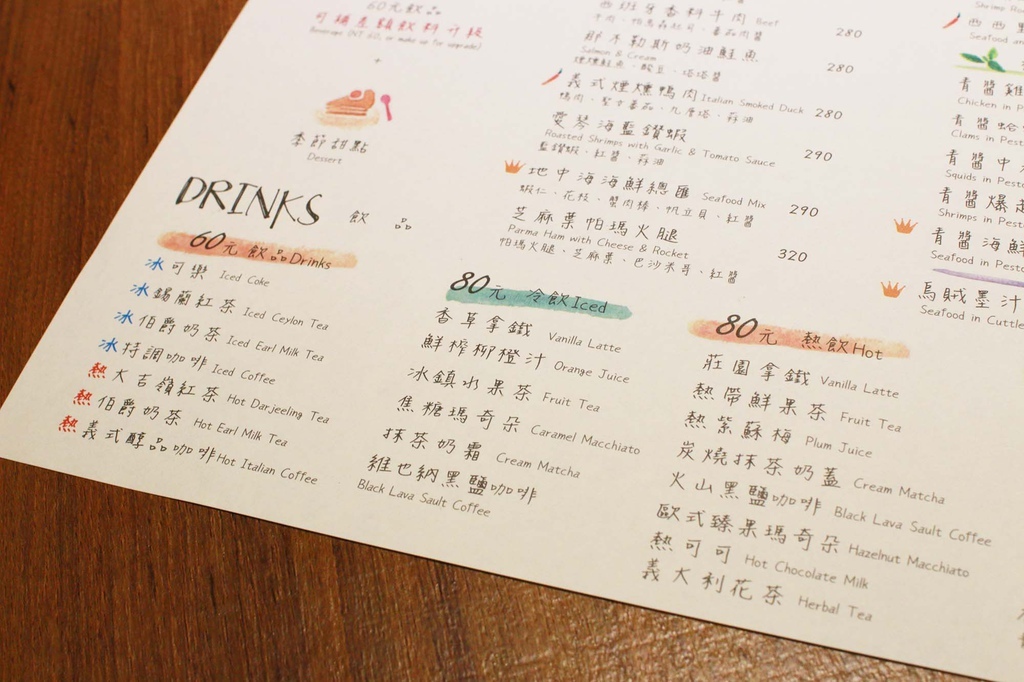 60元飲品
可補差額飲料升級
Beverage (NT 60, or make up for upgrade)
+
季節甜點
Dessert
DRINKS 飲品
60元 飲品Drinks
冰 可樂 Iced Coke
冰 錫蘭紅茶 Iced Ceylon Tea
冰 伯爵奶茶 Iced Earl Milk Tea
冰 特調咖啡 Iced Coffee
熱 大吉嶺紅茶 Hot Darjeeling Tea
熱 伯爵奶茶 Hot Earl Milk Tea
熱 義式醇品咖啡 Hot Italian Coffee
西班牙香料牛肉 Beef 280
牛肉、帕馬森起司、番茄肉醬
那不勒斯奶油鮭魚 280
Salmon & Cream
煙燻鮭魚、酸豆、塔塔醬
義式煙燻鴨肉 Italian Smoked Duck 280
鴨肉、聖女番茄、九層塔、蒜油
愛琴海藍鑽蝦 290
Roasted Shrimps with Garlic & Tomato Sauce
藍鑽蝦、紅醬、蒜油
地中海海鮮總匯 Seafood Mix 290
蝦仁、花枝、蟹肉棒、帆立貝、紅醬
芝麻葉帕瑪火腿 320
Parma Ham with Cheese & Rocket
帕瑪火腿、芝麻葉、巴沙米哥、紅醬
80元 冷飲Iced
香草拿鐵 Vanilla Latte
鮮榨柳橙汁 Orange Juice
冰鎮水果茶 Fruit Tea
焦糖瑪奇朵 Caramel Macchiato
抹茶奶霜 Cream Matcha
維也納黑鹽咖啡
Black Lava Sault Coffee
80元 熱飲Hot
莊園拿鐵 Vanilla Latte
熱帶鮮果茶 Fruit Tea
熱紫蘇梅 Plum Juice
炭燒抹茶奶蓋 Cream Matcha
火山黑鹽咖啡 Black Lava Sault Coffee
歐式臻果瑪奇朵 Hazelnut Macchiato
熱可可 Hot Chocolate Milk
義大利花茶 Herbal Tea
Shrimp Ro
西西里
Seafood an
青醬雞
Chicken in P
青醬蛤
Clams in Pes
青醬中
Squids in Pest
青醬爆
Shrimps in Pest
青醬海鮮
Seafood in Pest
烏賊墨汁
Seafood in Cuttle